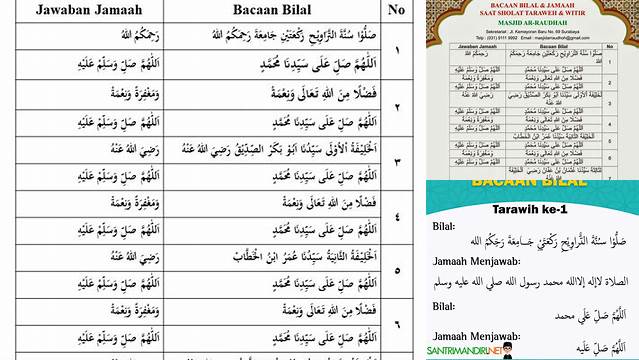 Jawaban Jamaah Bacaan Bilal No
صَلُّوْا سُنَّةَ التَّرَاوِيْحِ رَكْعَتَيْنِ جَامِعَةَ رَحِمَكُمُ اللهُ رَحِمَكُمُ اللهُ
١
اَللّٰهُمَّ صَلِّ عَلَى سَيِّدِنَا مُحَمَّدٍ اَللّٰهُمَّ صَلِّ وَسَلِّمْ عَلَيْهِ
فَضْلًا مِنَ اللهِ تَعَالَى وَنِعْمَةً وَمَغْفِرَةً وَنِعْمَةً
٢
اَللّٰهُمَّ صَلِّ عَلَى سَيِّدِنَا مُحَمَّدٍ اَللّٰهُمَّ صَلِّ وَسَلِّمْ عَلَيْهِ
اَلْخَلِيْفَةُ اْلأَوْلَى سَيِّدُنَا اَبُوْ بَكَرْ الصِّدِّيْقُ رَضِيَ اللهُ عَنْهُ رَضِيَ اللهُ عَنْهُ
٣
اَللّٰهُمَّ صَلِّ عَلَى سَيِّدِنَا مُحَمَّدٍ اَللّٰهُمَّ صَلِّ وَسَلِّمْ عَلَيْهِ
فَضْلًا مِنَ اللهِ تَعَالَى وَنِعْمَةً وَمَغْفِرَةً وَنِعْمَةً
٤
اَللّٰهُمَّ صَلِّ عَلَى سَيِّدِنَا مُحَمَّدٍ اَللّٰهُمَّ صَلِّ وَسَلِّمْ عَلَيْهِ
اَلْخَلِيْفَةُ الثَّانِيَةُ سَيِّدُنَا عُمَرُ ابْنُ الْخَطَّابْ رَضِيَ اللهُ عَنْهُ
٥
اَللّٰهُمَّ صَلِّ عَلَى سَيِّدِنَا مُحَمَّدٍ اَللّٰهُمَّ صَلِّ وَسَلِّمْ عَلَيْهِ
فَضْلًا مِنَ اللهِ تَعَالَى وَنِعْمَةً وَمَغْفِرَةً وَنِعْمَةً
٦
اَللّٰهُمَّ صَلِّ عَلَى سَيِّدِنَا مُحَمَّدٍ اَللّٰهُمَّ صَلِّ وَسَلِّمْ عَلَيْهِ
BACAAN BILAL & JAMAAH
SAAT SHOLAT TARAWEH & WITIR
MASJID AR-RAUDHAH
Sekretariat : Jl. Kemayoran Baru No, 69 Surabaya
Jawaban Jamaah Bacaan Bilal No
BACAAN BILAL
Tarawih ke-1
Bilal:
صَلُّوْا سُنَّةَ التَّرَاوِيْحِ رَكْعَتَيْنِ جَامِعَةً رَحِمَكُمُ الله
Jamaah Menjawab:
الصلاة لااله إلاالله محمد رسول الله صلى الله عليه وسلم
Bilal:
اَللّٰهُمَّ صَلِّ عَلَى محمد
Jamaah Menjawab:
اَللّٰهُمَّ صَلِّ عَلَيْه
SANTRIMANDIRI.NET